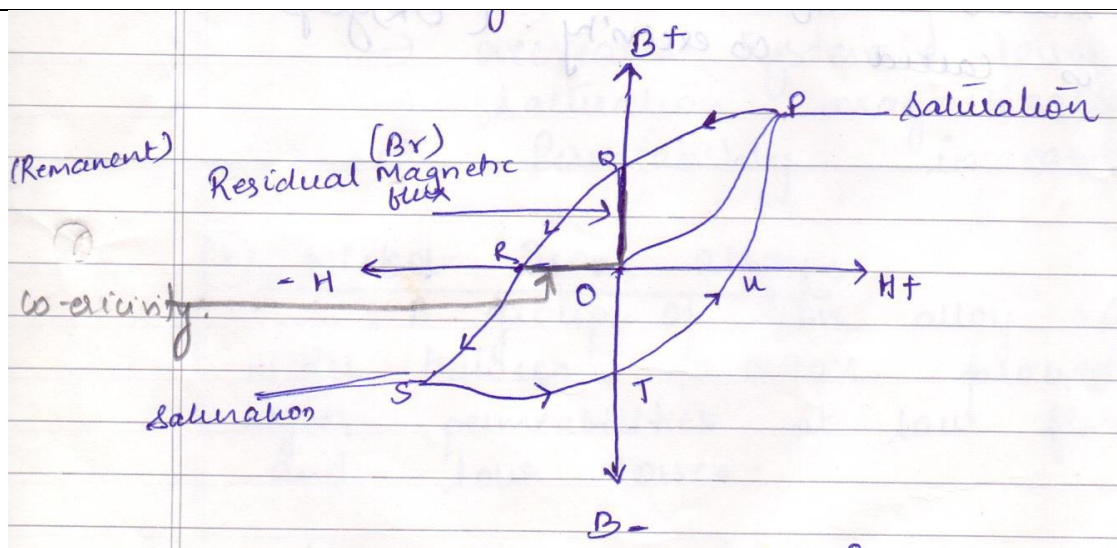 B+
P Saturation
(Remanent)
(Br)
Residual Magnetic
flux
Q
R
- H
O
u
H+
co-ericivity.
S
T
Saturation
B-